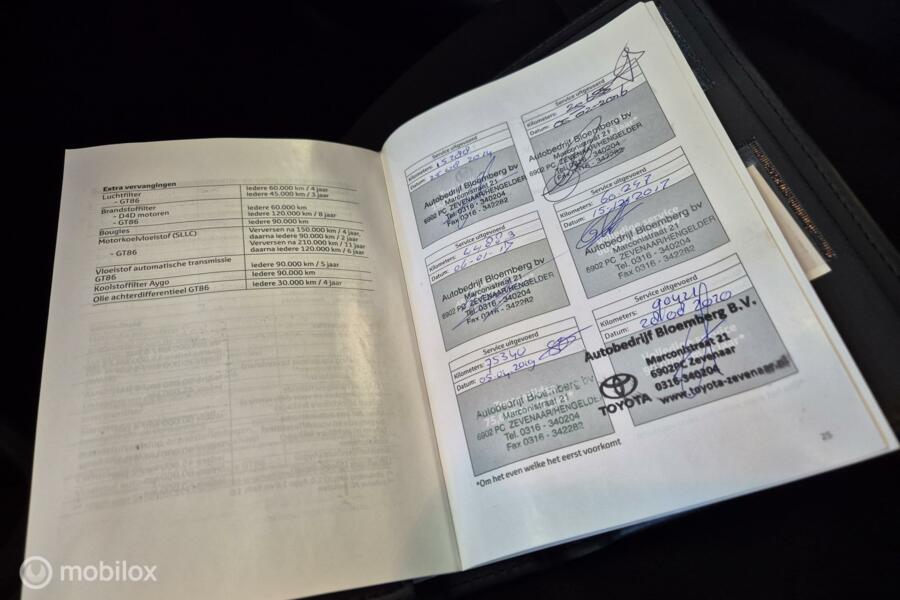 Extra vervangingen
Luchtfilter
- GT86
Iedere 60.000 km / 4 jaar
Iedere 45.000 km / 3 jaar
Brandstoffilter
- D4D motoren
- GT86
Iedere 60.000 km
Iedere 120.000 km / 8 jaar
Iedere 90.000 km
Bougies
Motorkoelvloeistof (SLLC)
- GT86
Verversen na 150.000 km / 4 jaar,
daarna iedere 90.000 km / 2 jaar
Verversen na 210.000 km / 11 jaar
daarna iedere 120.000 km / 6 jaar
Vloeistof automatische transmissie
GT86
Iedere 90.000 km / 5 jaar
Koolstoffilter Aygo
Iedere 90.000 km
Olie achterdifferentieel GT86
Iedere 30.000 km / 4 jaar
Service uitgevoerd
Kilometers:
Datum: 2014
Autobedrijf Bloemberg bv
Marconistraat 21
6902 PC ZEVENAAR/HENGELDER
Tel. 0316 - 340204
Fax 0316 - 342282
Service uitgevoerd
Kilometers:
Datum:
Autobedrijf Bloemberg bv
Marconistraat 21
6902 PC ZEVENAAR/HENGELDER
Tel. 0316 - 340204
Fax 0316 - 342282
Service uitgevoerd
Kilometers: 75340
Datum: 05.04.2019
Autobedrijf Bloemberg bv
Marconistraat 21
6902 PC ZEVENAAR/HENGELDER
Tel. 0316 - 340204
Fax 0316 - 342282
Service uitgevoerd
Kilometers:
Datum:
Autobedrijf Bloemberg bv
Marconistraat 21
6902 PC ZEVENAAR/HENGELDER
Tel. 0316 - 340204
Fax 0316
Service uitgevoerd
Kilometers: 60.247
Datum: 15.12.2017
Autobedrijf Bloemberg bv
Marconistraat 21
6902 PC ZEVENAAR/HENGELDER
Tel. 0316 - 340204
Fax 0316 - 342282
Service uitgevoerd
Kilometers:
Datum: 2020
Autobedrijf Bloemberg B.V.
Marconistraat 21
6902PC Zevenaar
0316-340204
www.toyota-zevenaar.nl
TOYOTA
*Om het even welke het eerst voorkomt
25
mobilox